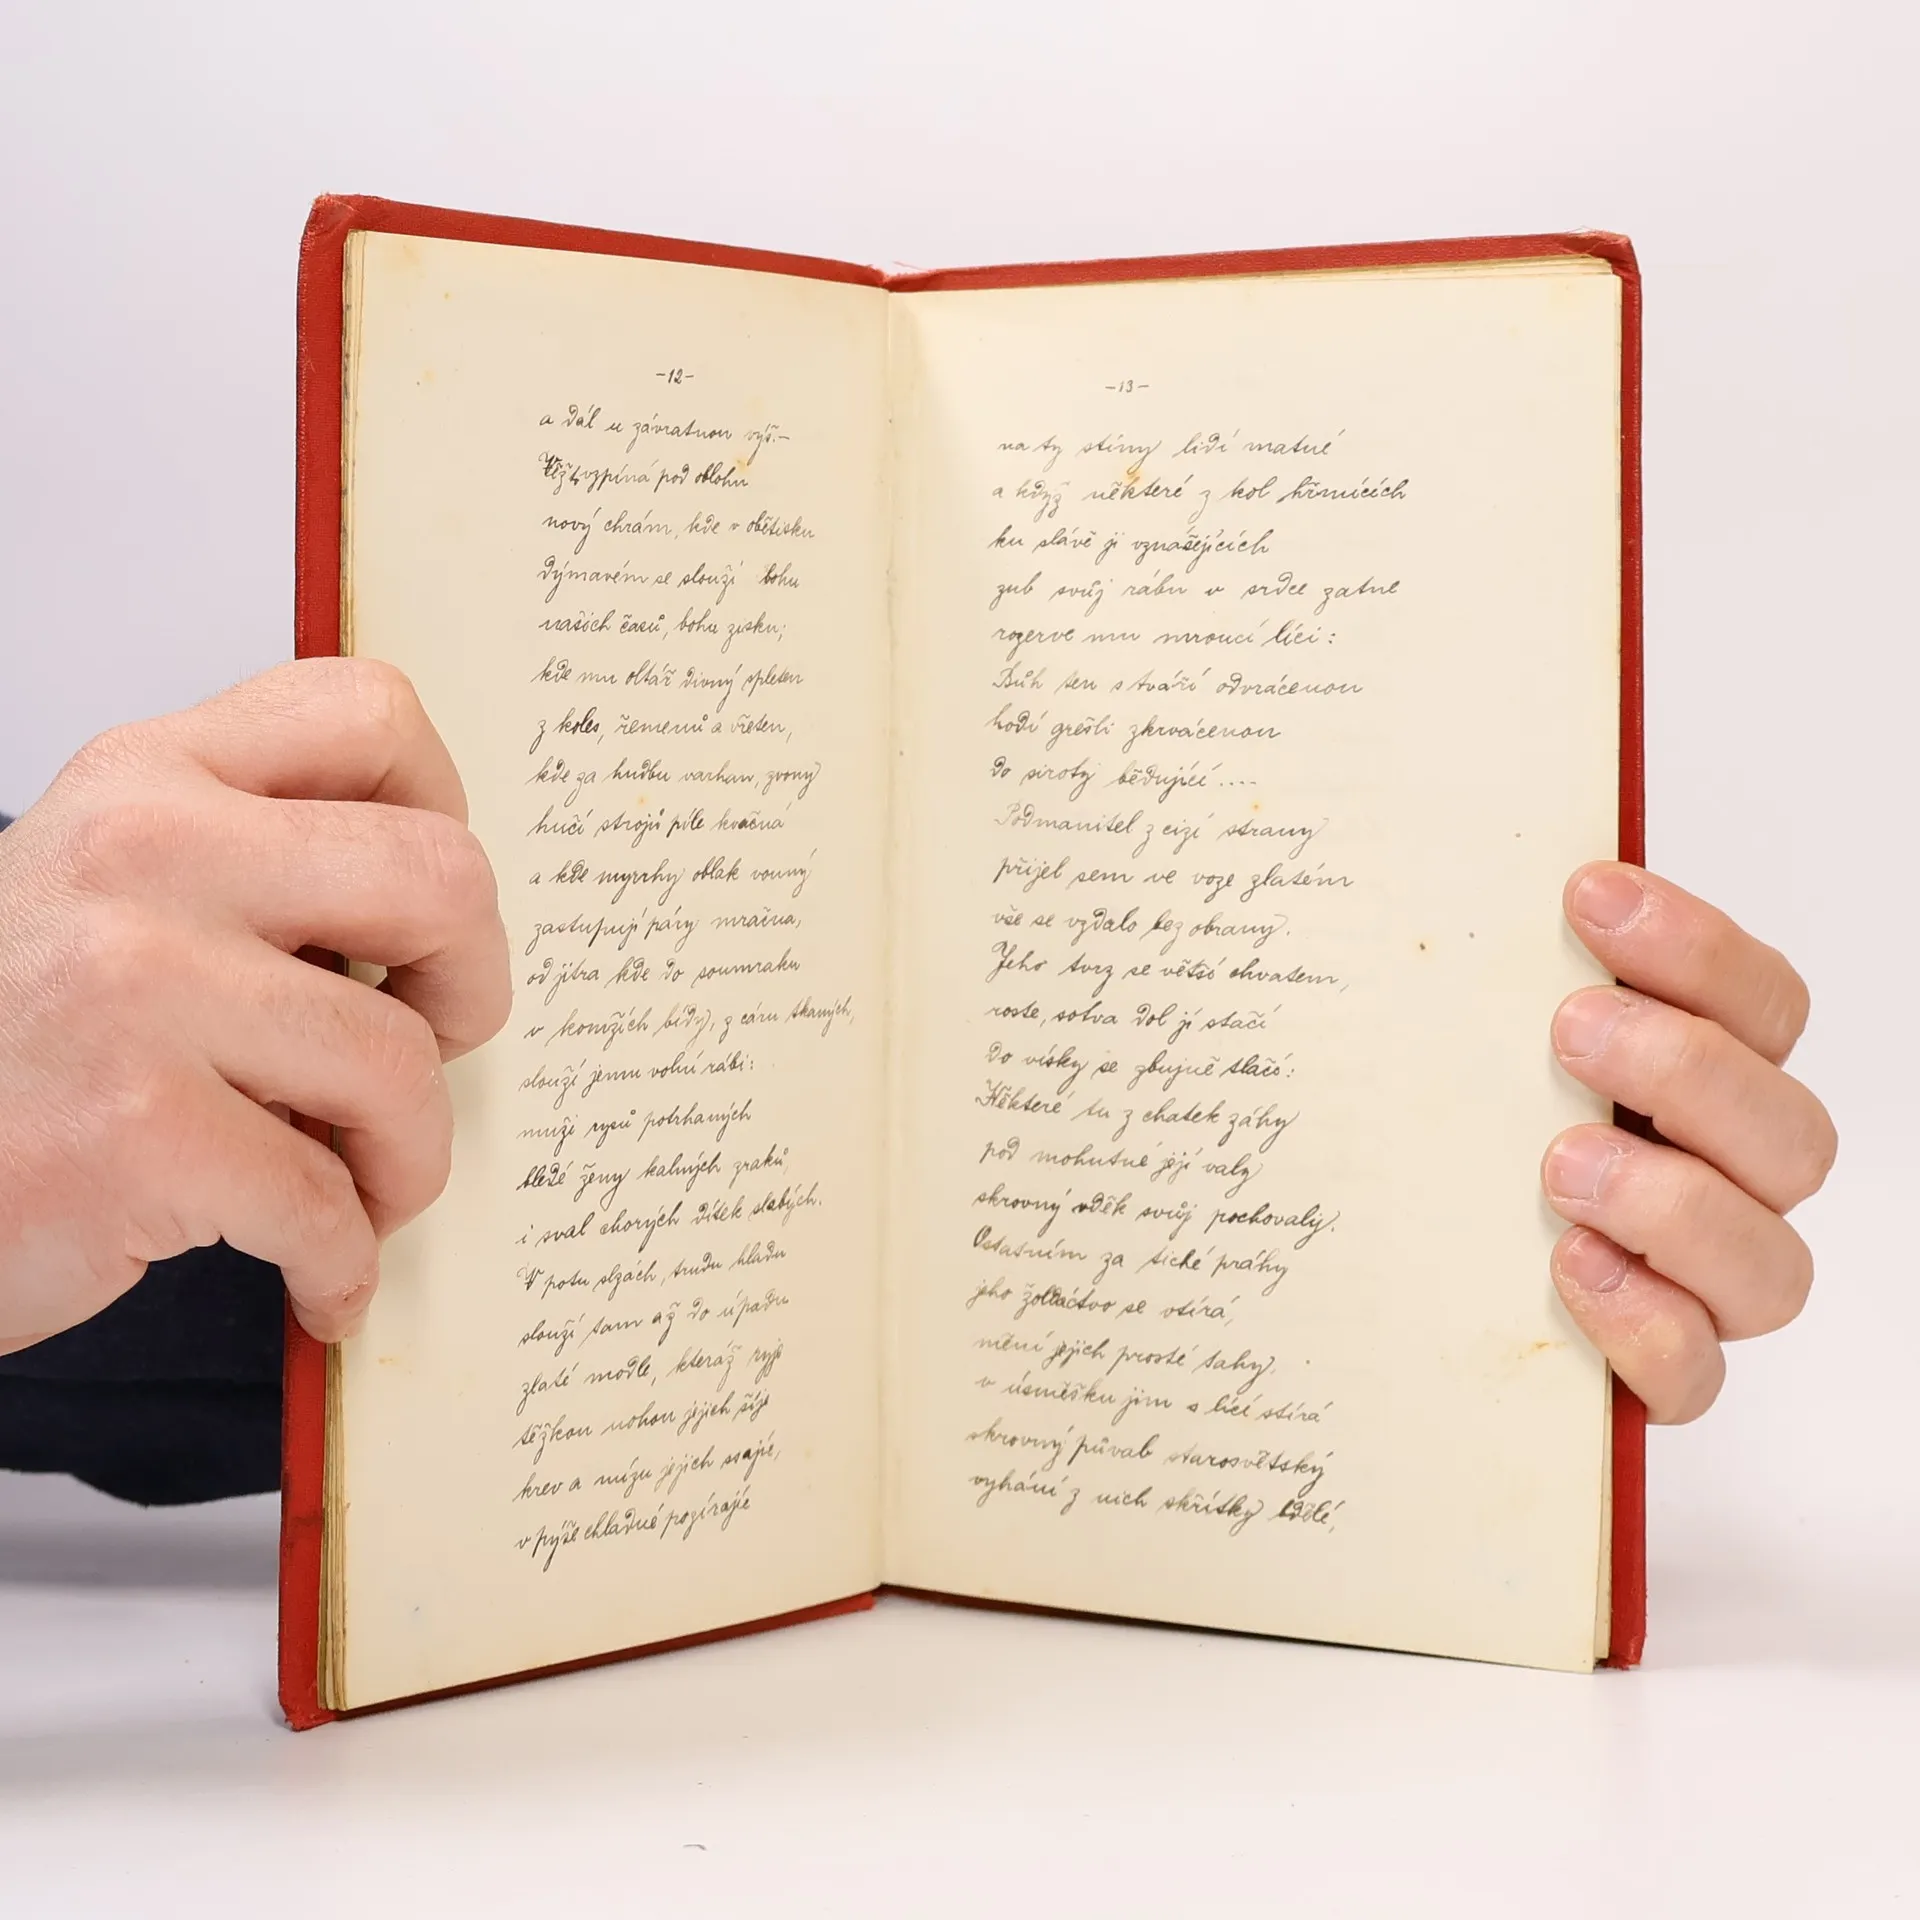 -12-
a dál u závratnou výš.-
Též vzpíná pod oblohu
nový chrám, kde v obětisku
dýmavém se slouží bohu
našich časů, bohu zisku;
kde mu oltář divný spleten
z koles, řemenů a vřeten,
kde za hudbu varhan, zvony
hučí strojů píle kvačná
a kde myrrhy oblak vonný
zastupují páry mračna,
od jitra kde do soumraku
v komžích bídy, z cáru tkaných,
slouží jemu volní rábi:
muži rysů potrhaných
bledé ženy kalných zraků,
i sval chorých dítek slabých.
V potu slzách, trudu hladu
slouží tam až do úpadu
zlaté modle, kteráž ryje
těžkou nohou jejich šíje
krev a mízu jejich ssajíc,
v pýše chladné pozírajíc
-13-
na ty stíny lidí matné
a když některé z kol hřmících
ku slávě jí vznášejících
zub svůj rábu v srdce zatne
rozerve mu mroucí líci:
Bůh ten s tváří odvrácenou
hodí grešli zkrvácenou
do siroty bědující....
Podmanitel z cizí strany
přijel sem ve voze zlatém
vše se vzdalo bez obrany.
Jeho tvrz se větší chvatem,
roste, sotva dol jí stačí
do vísky se zbujně tlačí:
Některé tu z chatek záhy
pod mohutné její valy
skrovný vděk svůj pochovaly.
Ostatním za tiché práhy
jeho žoldáctvo se vtírá,
mění jejich prosté tahy,
v úsměšku jim s lící stírá
skrovný půvab starosvětský
vyhání z nich skřítky